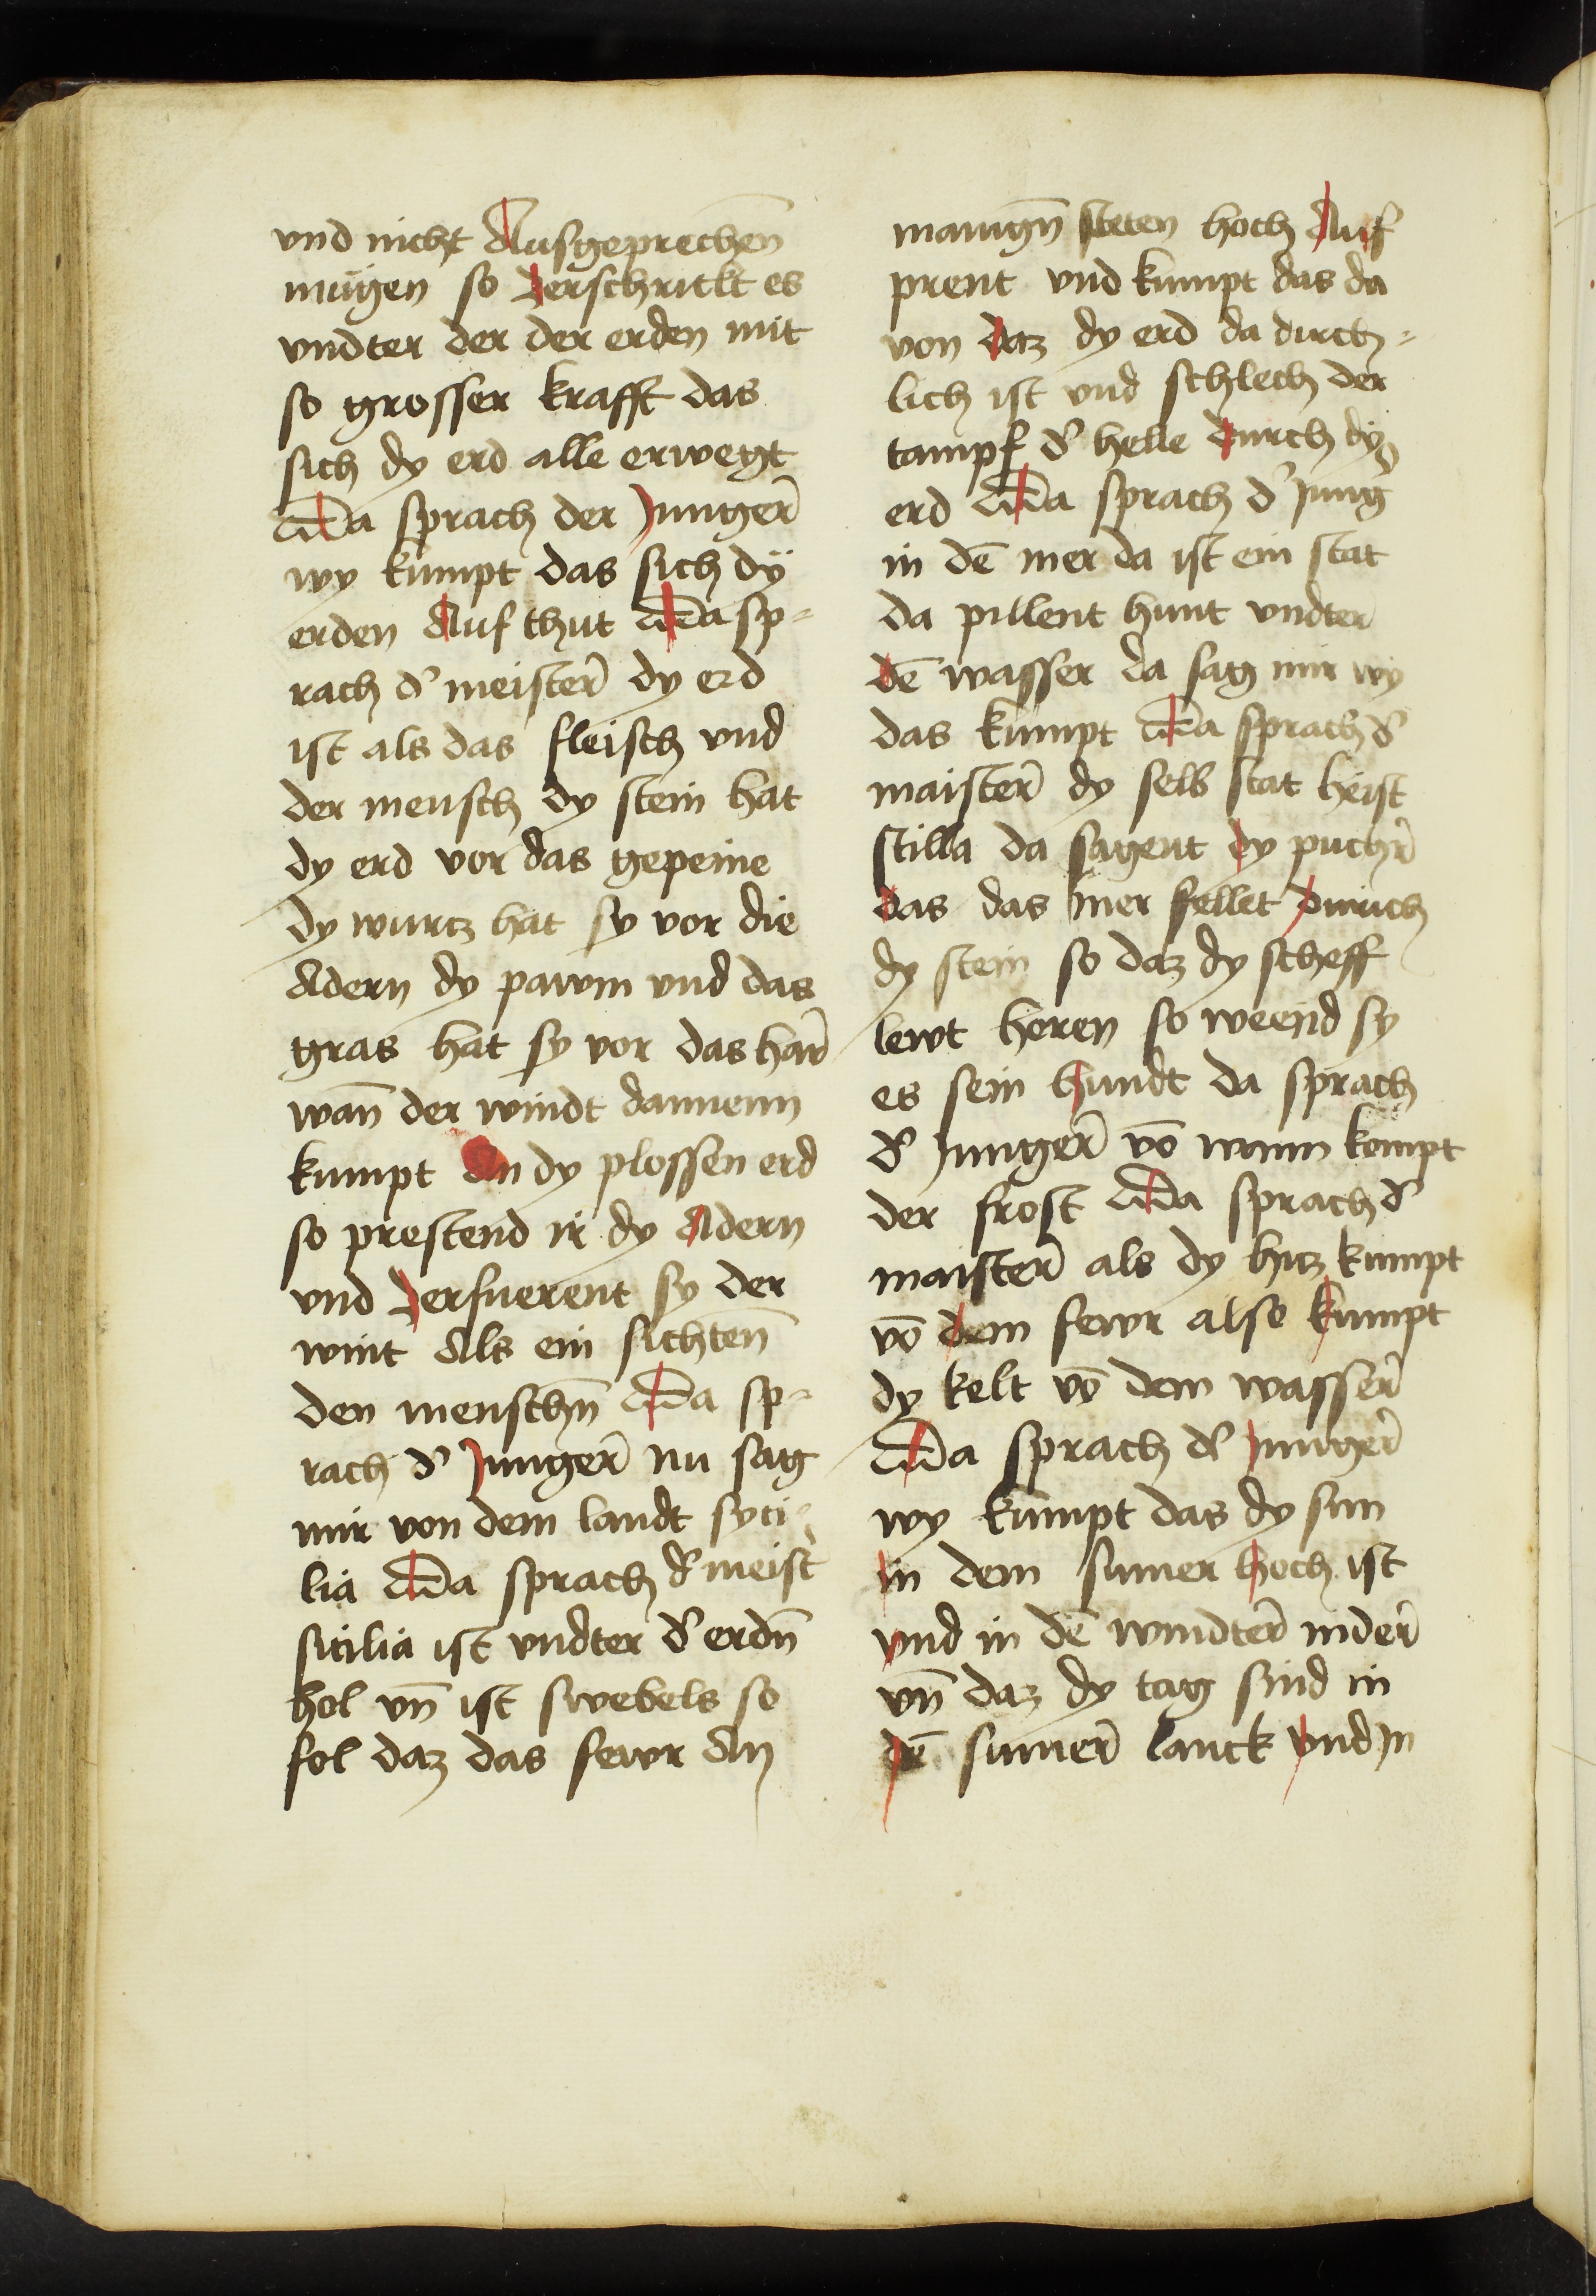 vnd nicht Ausgeprechen̄
mügen so derschrickt es
vndter der der erden mit
so grosser krafft das
sich dy erd alle erwegt
Da sprach der Junger̄
wy kumpt das sich dÿ
erden Auf thut Da sp-
rach d' meister̄ dy erd
ist als das fleisch vnd
der mensch dy stein hat
dy erd vor das gepeine
dy wurcz hat sy vor die
Adern dy pawm vnd das
gras hat sy vor das har̄
wan̄ der windt dannenn
kumpt An dy plossen erd
so prestend ir dy Adern
vnd derfuerent sy der
wint Als ein sichten̄
den menschn̄ Da sp-
rach d' Junger̄ nu sag
mir von dem landt syci-
lia Da sprach d' meist'
sicilia ist vndter d' erdn̄
hol vn̄ ist swebels so
fol daz das fewr An
manign̄ steten hoch Auf
prent vnd kumpt das da
von daz dy erd da durch-
lich ist vnd schlech der
tampf d' helle durch dy
erd Da sprach d' Jung'
in dē mer da ist ein stat
da pillent hunt vndter
dē wasser da sag mir wy
das kumpt Da sprach d'
maister̄ dy selb stat heist
stilla da sagent dy puchr̄
das das mer fellet durich
dy stein so daz dy scheff
lewt horen so weend sy
es sein hundt da sprach
d' Junger̄ vō wann kompt
der frost Da sprach d'
maister̄ als dy hicz kumpt
vō dem fewr also kumpt
dy kelt vō dem wasser̄
Da sprach d' Junger̄
wy kumpt das dy sun
in dem sumer hoch ist
vnd in dē windter̄ nider̄
vn̄ daz dy tag sind in
dē sumer̄ lanck vnd Jn